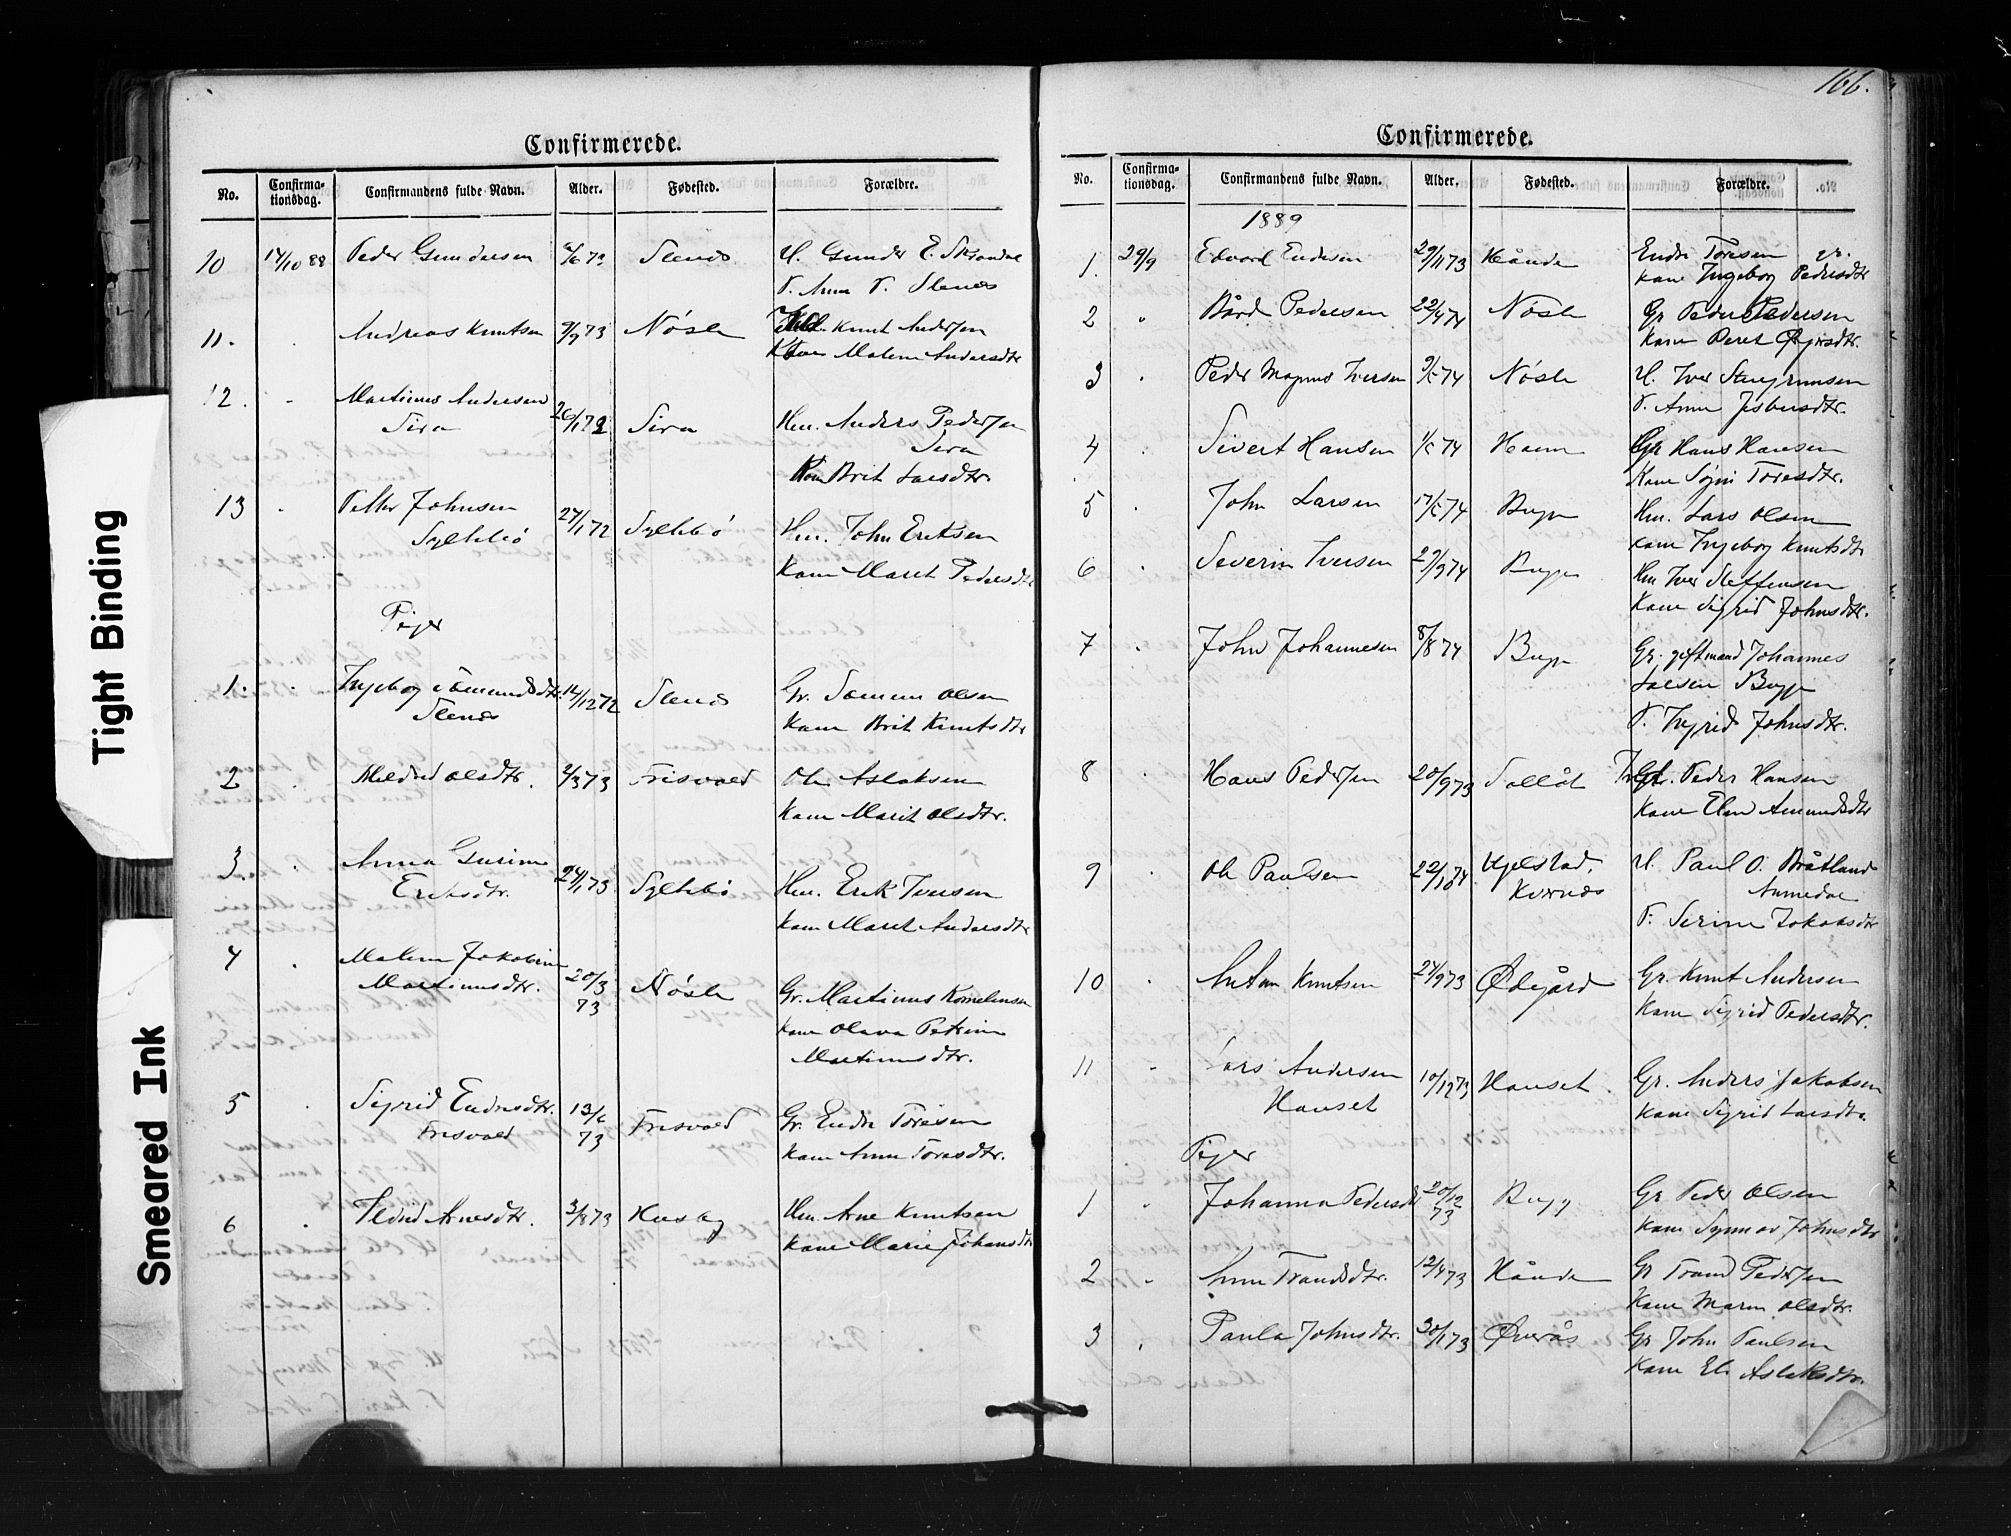 Tight Binding
Smeared Ink
Confirmerede.
No. Confirma-tionsdag. Confirmandens fulde Navn. Alder. Fødested. Forældre.
10 14/10 88 Peder Gundersen 73 Stenes U. Gunder E.
P. Anna P. Stenes
11. Andreas Knutsen 9/9 73 Nøsle Knut Andersen
Malene Andersdtr
12. Martinus Andersen
Sira 26/1 72 Sira Hm. Anders Pedersen
Sira
Kone Brit Larsdtr.
13 Petter Johnsen
Syltebö 27/1 72 Syltebö Hm. John Eriksen
Kone Maret Pedersdtr
Piger
1. Ingeborg Sämundsdtr.
Stenes 14/12 72 Stenes Gr. Olsen
Kone Brit Knutsdtr
2 Mildrid Olsdtr. 2/3 73 Frisvold Ole Aslaksen
Kone Marit Olsdtr.
3. Anna Gurine
Eriksdtr. 24/1 73 Syltebö Hm. Erik Iversen
Kone Maret Andersdtr
4 Malene Jakobine
Martinusdtr. 20/3
73 Nøsle Gr. Martinus Kornelinsen
Kone Olava Petrine
Martinusdtr.
5 Sigrid Endresdtr.
Frisvold 13/6
73 Frisvold Gr. Endre Toresen
Kone Anne Toresdtr.
6 Arnesdtr. 3/8 73 Husby Hm. Arne Knutsen
Kone Marie Johansdtr
166.
Confirmerede.
No. Confirma-tionsdag. Confirmandens fulde Navn. Alder. Fødested. Forældre.
1889
1. 29/9 Edvard Endresen 29/11 73 Hånde Endre Toresen gr.
Kone Ingeborg Pedersdtr
2 " Bård Pedersen 22/4 74 Nøsle Gr Peder Pedersen
Kone Beret
3 Peder Magnus Iversen 74 Nøsle U. Iver Steingrimsen
P. Anne Jesbersdtr.
4 Sivert Hansen 74 Hoem Gr Hans Hansen
Kone Toresdtr.
5 John Larsen 74 Bugge Hm. Lars Olsen
Kone Ingeborg Knutsdtr
6 Severin Iversen 74 Bugge Hm Iver Steffensen
Kone Sigrid Johnsdtr.
7 John Johannesen 8/8 74 Bugge Gr. giftmand Johannes
Larsen Bugge
P. Ingrid Johnsdtr.
8 Hans Pedersen 20/9 73 Peder Hansen
Kone Elen Amundsdtr
9 Ole Paulsen 22/1 74 Ugelstad,
Kornes U. Paul O. Bråtland
P. Serine Jakobsdtr
10 Anton Knutsen 24/9 73 Ødegård Gr. Knut Andersen
Kone Sigrid Pedersdtr.
11 Lars Andersen
Hanset 10/12 73 Hanset. Gr. Anders Jakobsen
Kone Sigrid Larsdtr.
Piger
1 " Johanna Pedersdtr 20/12
73 Bugg Gr Peder Olsen
Kone Synnøv Johnsdtr
2 " Anne Trondsdtr. 12/4 73 Hånde Gr Trond Pedersen
Kone Maren Olsdtr.
3 Paula Johnsdtr. 30/1 73 Øverås Gr John Paulsen
Kone Eli Aslaksdtr.